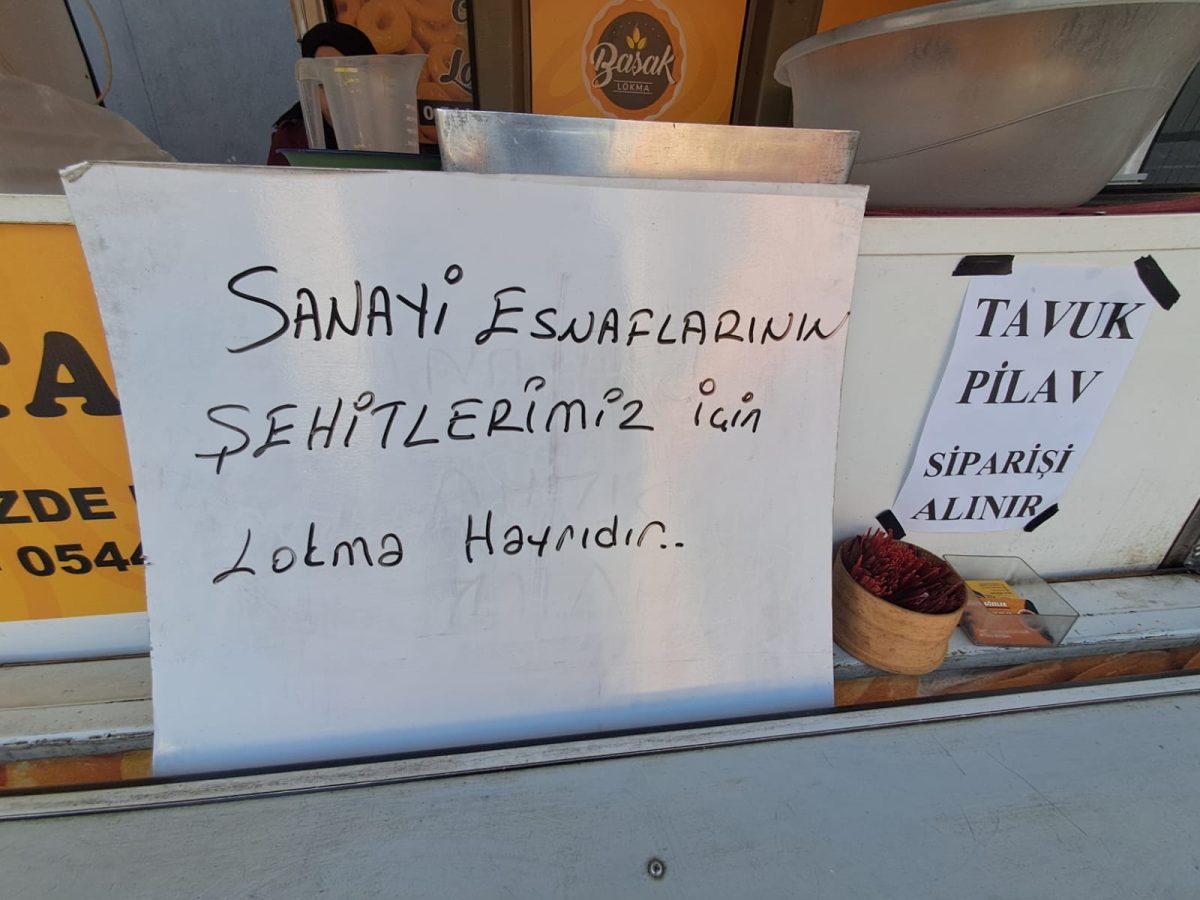 Başak
LOKMA
SANAYİ ESNAFLARININ
ŞEHİTLERİMİZ İÇİN
Lokma Hayrıdır..
TAVUK
PİLAV
SİPARİŞİ
ALINIR
ZDE
0544